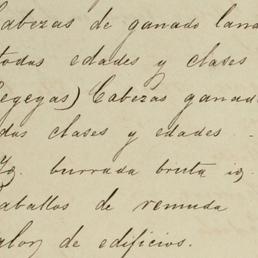 Cabezas de ganado lana
todas edades y clases
) Cabezas ganad
das clases y edades.
burrada bruta ig.
aballos de remuda
alor de edificios.